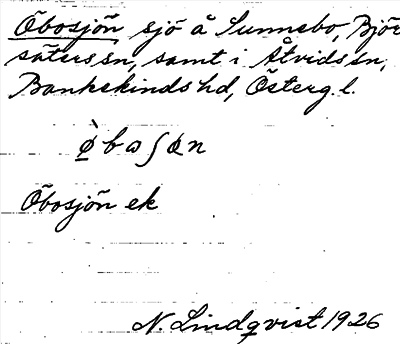 Öbosjön sjö å Sunnebo, Björ
säters sn, samt i Åtvids sn,
Bankekinds hd, Österg. l.
ø̀bωʃøn
Öbosjön ek
N. Lindqvist 1926